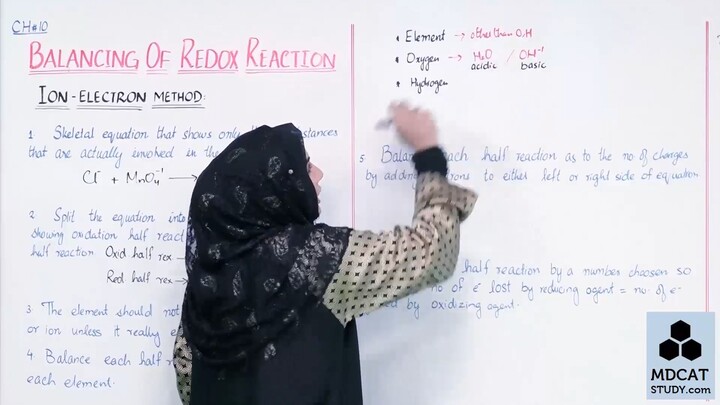 CH#10
BALANCING OF REDOX REACTION
ION-ELECTRON METHOD:
1 Skeletal equation that shows only
that are actually involved in the
Cl + MnO4⁻¹ →
2. Split the equation into
showing oxidation half
half reaction Oxid half rex →
Red half rex →
3. The element should not
or ion unless it really
4. Balance each half
each element.
• Element → other than O,H
• Oxygen → H2O / OH⁻¹
acidic basic
• Hydrogen
5. each half reaction as to the no of changes
by adding to either left or right side of equation
half reaction by a number choosen so
no of e⁻ lost by reducing agent = no. of e⁻
by oxidizing agent.
MDCAT
STUDY.com